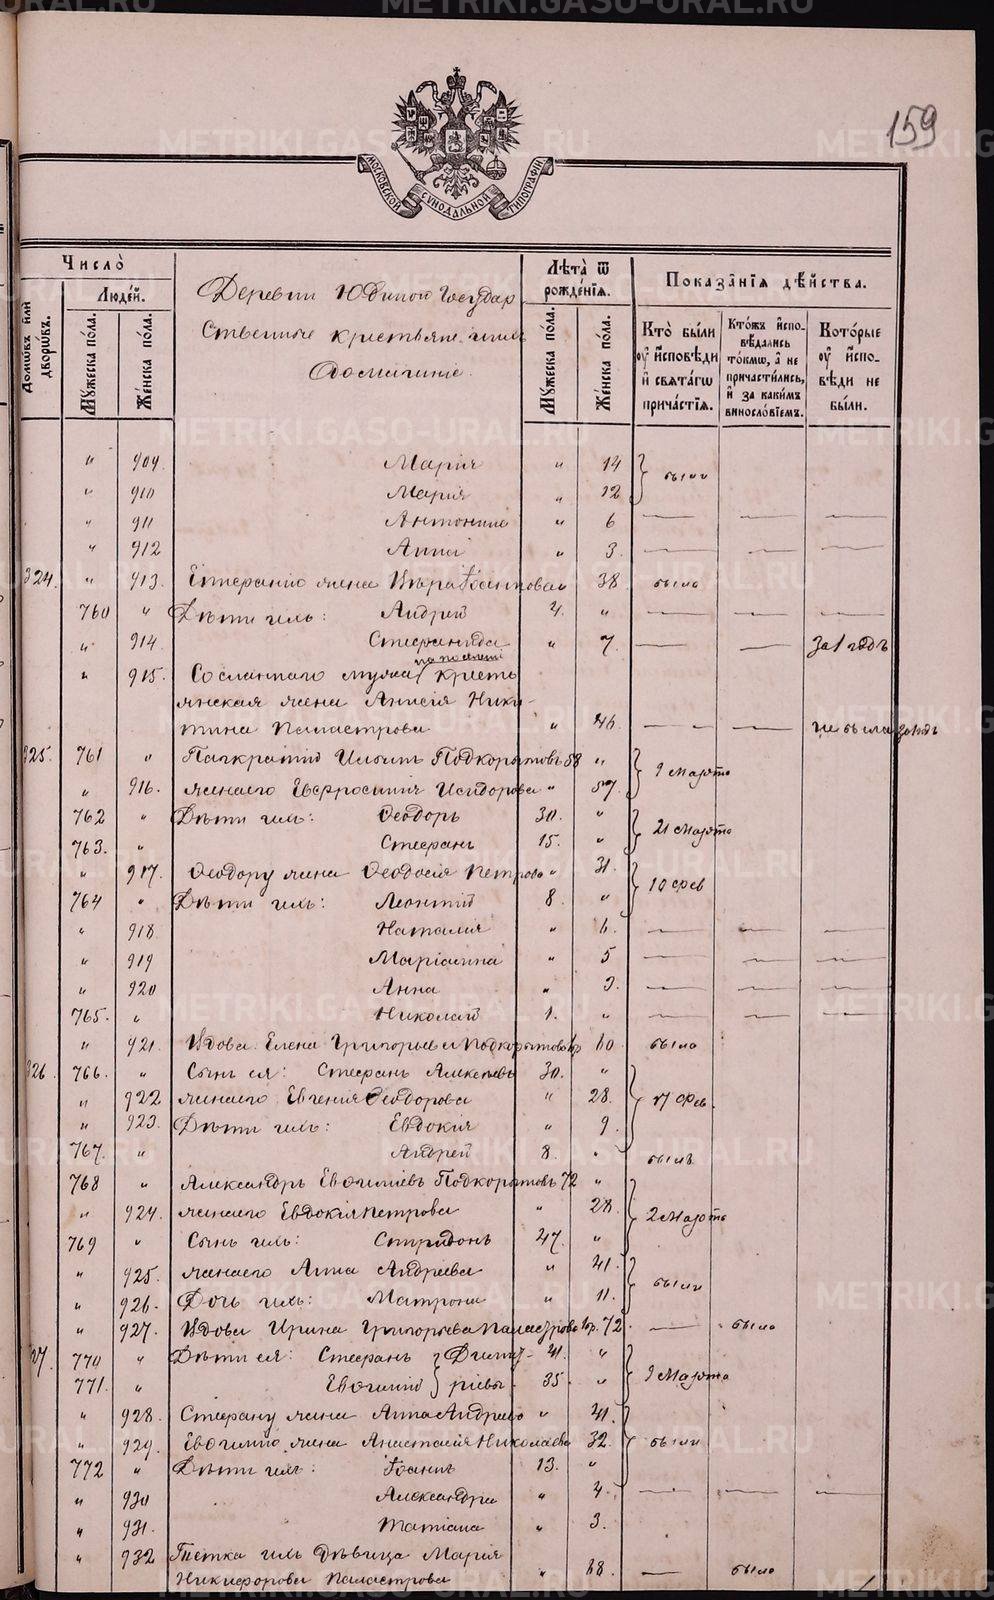 METRIKI.GASO-URAL.RU
159
МОСКОВСКОЙ СѴНОДАЛЬНОЙ ТИПОГРАФІИ
Число̀
Домѡвъ и҆лѝ дворѡвъ.
Людей.
Мꙋжеска по́ла.
Же́нска по́ла.
Деревни Юдиной Государ
ственные крестьяне и ихъ
Домашніе.
Лѣ́та ѿ рожде́нїѧ.
Мꙋжеска по́ла.
Же́нска по́ла.
Показа̑нїѧ дѣ́йства.
Кто̀ бы́ли ᲂу҆ и҆́сповѣди и҆ свѧта́гѡ прича́стїѧ.
Кто́жъ и҆спо-вѣ́дались то́кмѡ, а҆ не причасти́лись, и҆ за каки́мъ винослові́емъ.
Кото́рые ᲂу҆ и҆́спо-вѣди не бы́ли.
" 909. Марія " 14 были
" 910 Марія " 12
" 911 Антонина " 6 — — —
" 912 Анна " 3. — — —
324. " 913. жена Вѣра 38 была
760 " Дѣти ихъ: Андрей 4. " — — —
" 914 Стефанида " 7. — — За 1 годъ
" 915. Сосланнаго на поселеніе мужа кресть
янская жена Анисія Ники
тина Паластрова " 46 — — не была
325. 761 " Панкратій Ильинъ Подкорытовъ 58 " 9 Марта
" 916. жена его Евфросинія Исидорова " 57.
762 " Дѣти ихъ: Ѳеодоръ 30. " 21 Марта
763. " Стефанъ 15. "
" 917. Ѳеодору жена Ѳеодосія Петрова " 31. 10 Фев
764 " Дѣти ихъ: Леонтій 8. "
" 918. Наталія " 6. — — —
" 919 Маріанна " 5 — — —
" 920 Анна " 3. — — —
765. " Николай 1. " — — —
" 921. Вдова Елена Григорьева Подкорытова 60 была
326. 766. " Сынъ ея: Стефанъ Алексѣевъ 30. "
" 922 жена его Евгенія Ѳеодорова " 28. 17 Фев.
" 923. Дѣти ихъ: Евдокія " 9.
767. " Андрей 8. " былъ
768 " Александръ Евѳиміевъ Подкорытовъ 72 "
" 924. жена его Евдокія Петрова " 28. 2 Марта
769 " Сынъ ихъ: Спиридонъ 47. "
" 925. жена его Анна Андреева " 41. были
" 926. Дочь ихъ: Матрона " 11.
" 927. Вдова Ирина Григорьева Паластрова 72. — была
27. 770 " Дѣти ея: Стефанъ Дмит- 41. "
771. " Евѳимій ріевы. 35. " 9 Марта
" 928. Стефану жена Анна Андреева " 41.
" 929. Евѳимію жена Анастасія Николаева 32. были
772 " Дѣти ихъ: Іоаннъ 13. "
" 930 Александра " 4. — — —
" 931. Татіана " 3.
" 932 Тетка ихъ Дѣвица Марія
Никифорова Паластрова " 68. — была